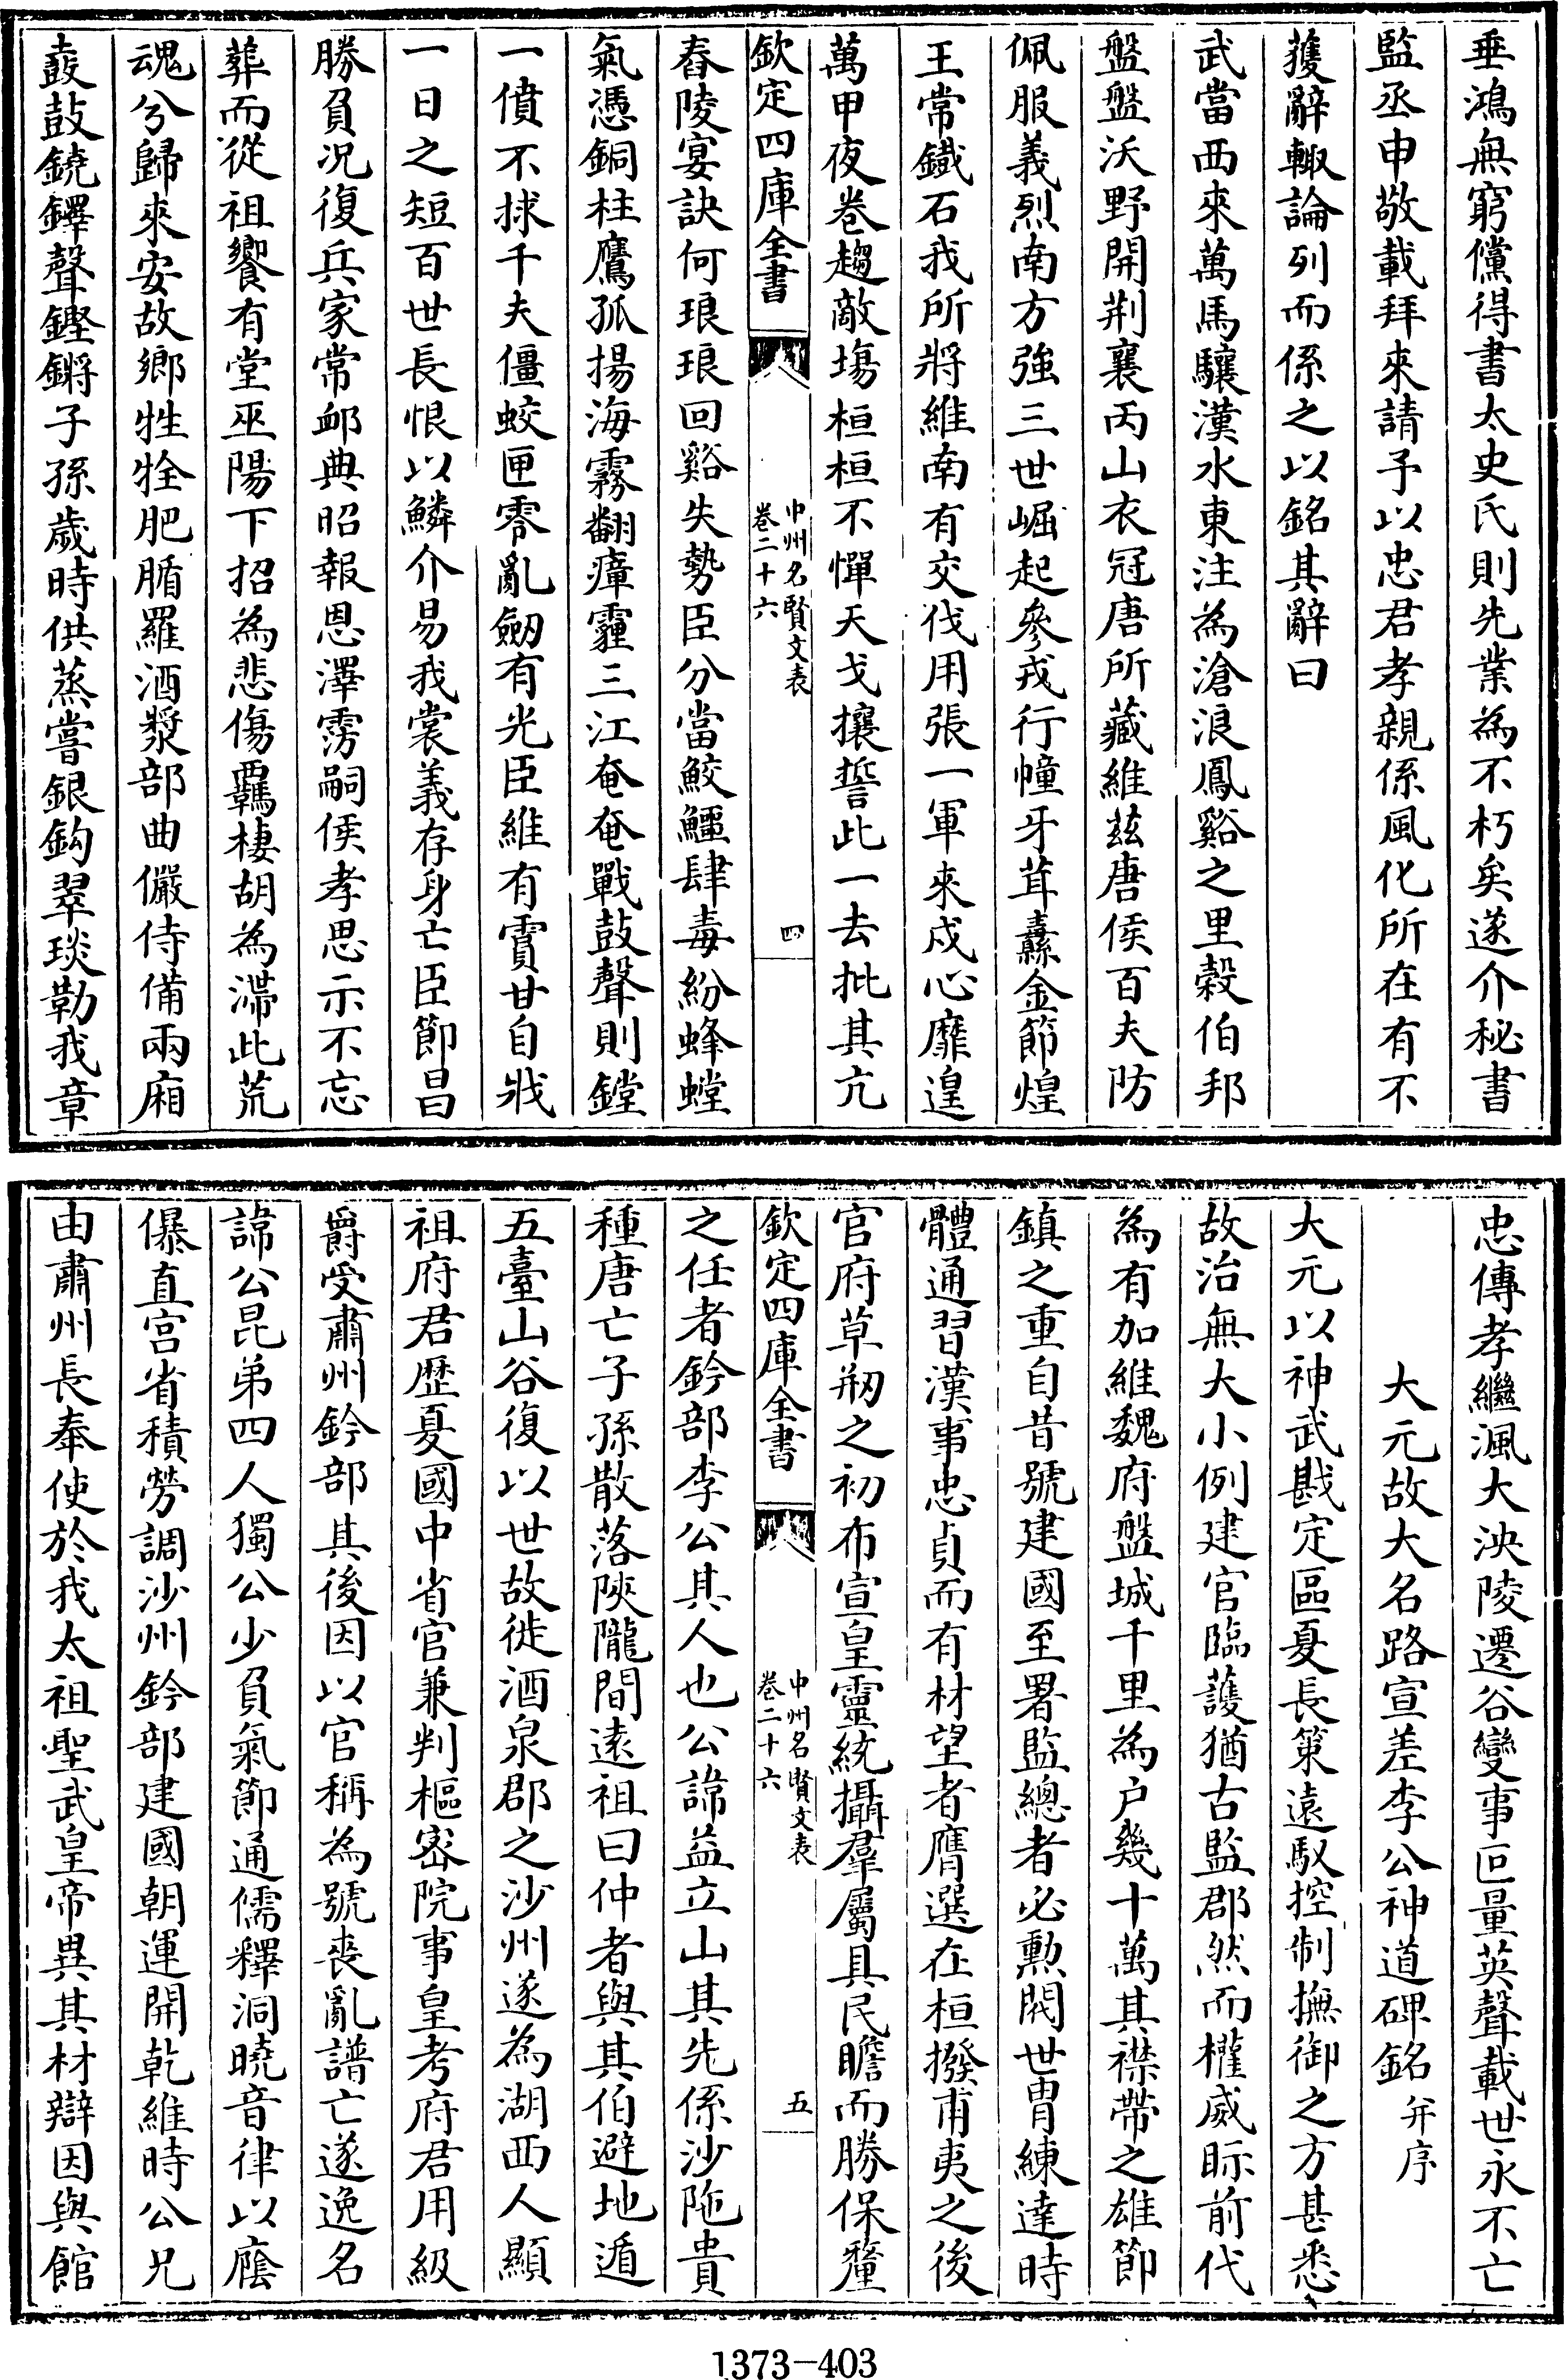 垂鴻無窮儻得書太史氏則先業為不朽矣遂介秘書
監丞申敬載拜來請予以忠君孝親係風化所在有不
獲辭輙論列而係之以銘其辭曰
武當西來萬馬驤漢水東注為滄浪鳳谿之里穀伯邦
盤盤沃野開荆襄丙山衣冠唐所藏維兹唐侯百夫防
佩服義烈南方強三世崛起參戎行幢牙茸纛金節煌
王常鐵石我所將維南有交伐用張一軍來戍心靡遑
萬甲夜卷趨敵塲桓桓不憚天戈攘誓此一去批其亢
欽定四庫全書
中州名賢文表
卷二十六
四
舂陵宴訣何琅琅回谿失勢臣分當鮫鱷肆毒紛蜂螳
氣憑銅柱鷹孤揚海霧翻瘴霾三江奄奄戰鼓聲則鏜
一僨不捄千夫僵蛟匣零亂劒有光臣維有賈甘自戕
一日之短百世長恨以鱗介易我裳義存身亡臣節昌
勝負况復兵家常卹典昭報恩澤雱嗣侯孝思示不忘
葬而從祖饗有堂巫陽下招為悲傷羈棲胡為滯此荒
魂兮歸來安故鄉牲牷肥腯羅酒漿部曲儼侍備兩廂
鼖鼓鐃鐸聲鏗鏘子孫歲時供蒸嘗銀鈎翠琰勒我章
忠傳孝繼渢大泱陵遷谷變事叵量英聲載世永不亡
大元故大名路宣差李公神道碑銘并序
大元以神武戡定區夏長策遠馭控制撫御之方甚悉
故治無大小例建官臨護猶古監郡然而權威眎前代
為有加維魏府盤城千里為户幾十萬其襟帶之雄節
鎮之重自昔號建國至署監總者必勲閥世胄練達時
體通習漢事忠貞而有材望者膺選在桓撥甫夷之後
官府草剏之初布宣皇靈統攝羣屬具民瞻而勝保釐
欽定四庫全書
中州名賢文表
卷二十六
五
之任者鈐部李公其人也公諱益立山其先係沙陁貴
種唐亡子孫散落陝隴間遠祖曰仲者與其伯避地遁
五臺山谷復以世故徙酒泉郡之沙州遂為湖西人顯
祖府君歷夏國中省官兼判樞密院事皇考府君用級
爵受肅州鈐部其後因以官稱為號喪亂譜亡遂逸名
諱公昆弟四人獨公少負氣節通儒釋洞曉音律以廕
儤直宫省積勞調沙州鈐部建國朝運開乾維時公兄
由肅州長奉使於我太祖聖武皇帝異其材辯因與館
1373-403